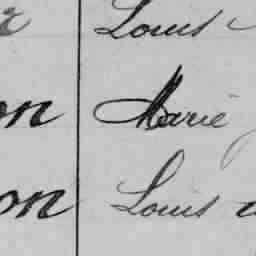 Louis
on Marie
on Louis